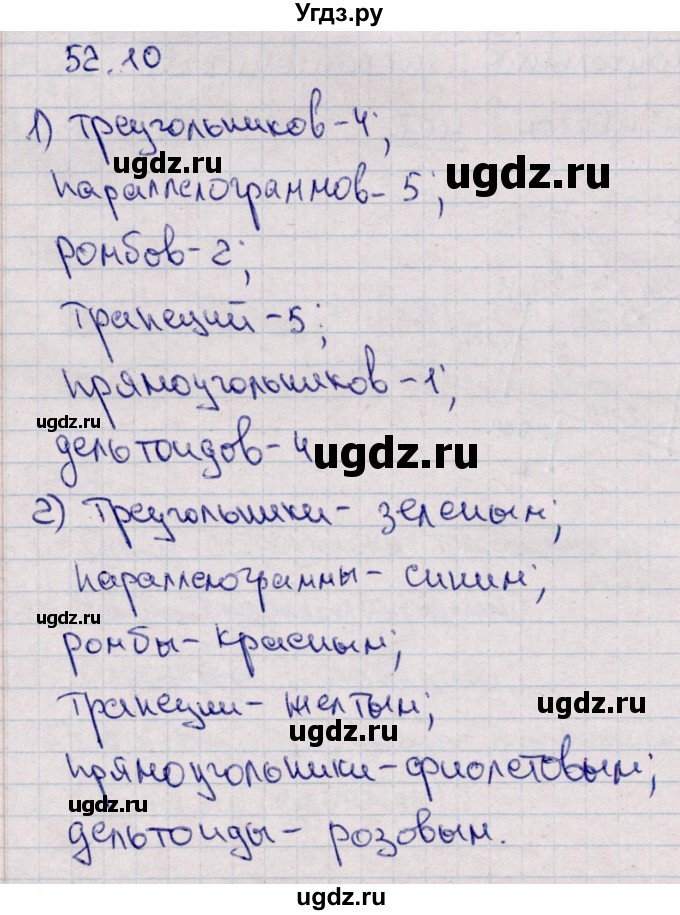 Угдз.ру
52.10
1) треугольников - 4;
ugdz.ru
ugdz.ru
параллелограммов - 5;
ромбов - 2;
трапеций - 5;
прямоугольников - 1;
ugdz.ru
дельтоидов - 4
ugdz.ru
2) Треугольники - зеленым;
параллелограммы - синим;
ugdz.ru
ромбы - красным;
трапеции - желтым;
ugdz.ru
прямоугольники - фиолетовым;
ugdz.ru
дельтоиды - розовым.
ugdz.ru